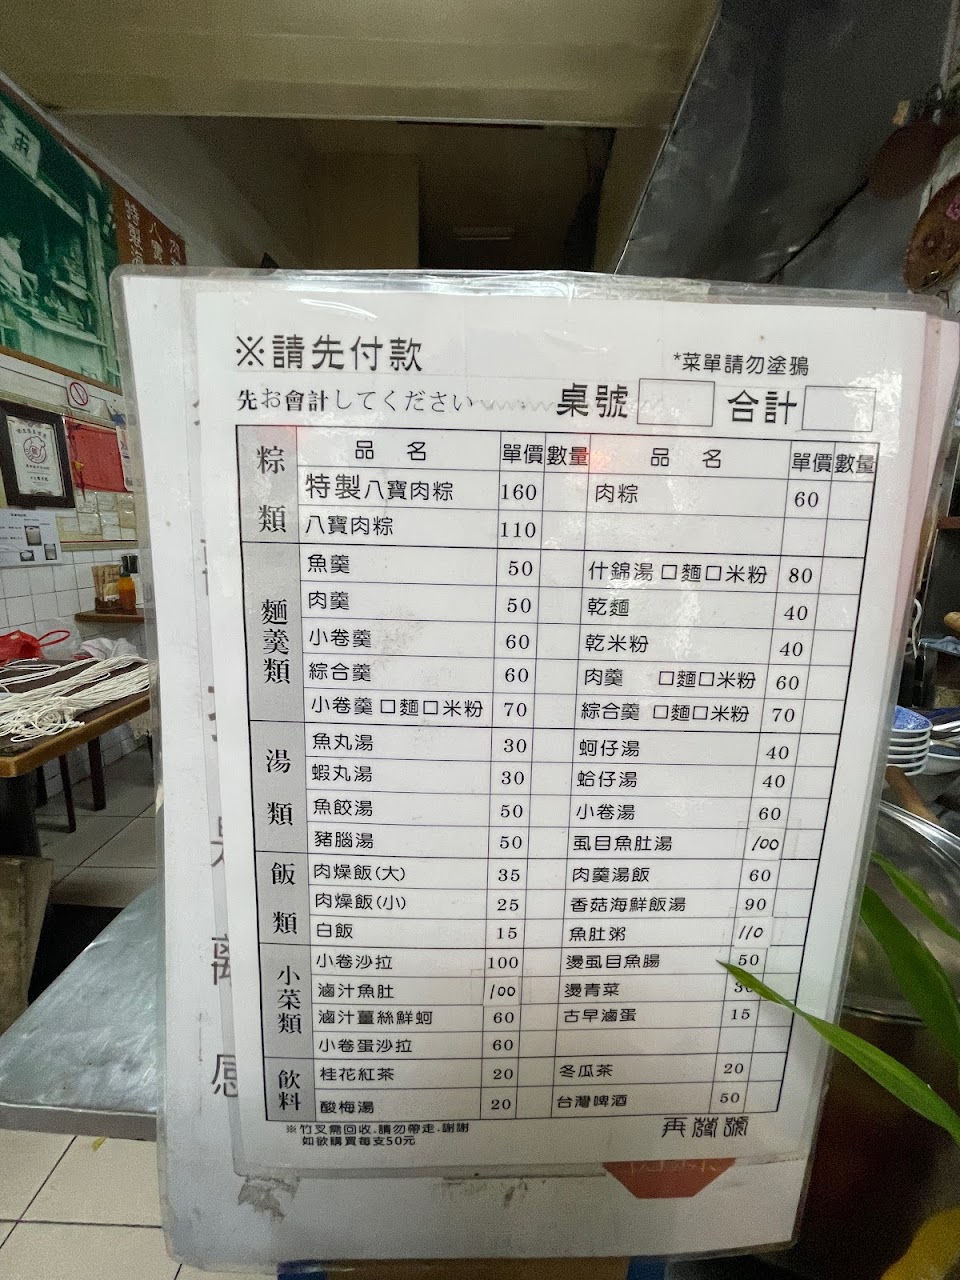 ※請先付款
*菜單請勿塗鴉
先お會計してください
桌號 合計
粽類
品名 單價 數量 品名 單價 數量
特製八寶肉粽 160 肉粽 60
八寶肉粽 110
麵羹類
魚羹 50 什錦湯 口麵口米粉 80
肉羹 50 乾麵 40
小卷羹 60 乾米粉 40
綜合羹 60 肉羹 口麵口米粉 60
小卷羹 口麵口米粉 70 綜合羹 口麵口米粉 70
湯類
魚丸湯 30 蚵仔湯 40
蝦丸湯 30 蛤仔湯 40
魚餃湯 50 小卷湯 60
豬腦湯 50 虱目魚肚湯 100
飯類
肉燥飯(大) 35 肉羹湯飯 60
肉燥飯(小) 25 香菇海鮮飯湯 90
白飯 15 魚肚粥 110
小菜類
小卷沙拉 100 燙虱目魚腸 50
滷汁魚肚 100 燙青菜 30
滷汁薑絲鮮蚵 60 古早滷蛋 15
小卷蛋沙拉 60
飲料
桂花紅茶 20 冬瓜茶 20
酸梅湯 20 台灣啤酒 50
※竹叉需回收.請勿帶走.謝謝
如欲購買每支50元
再發號